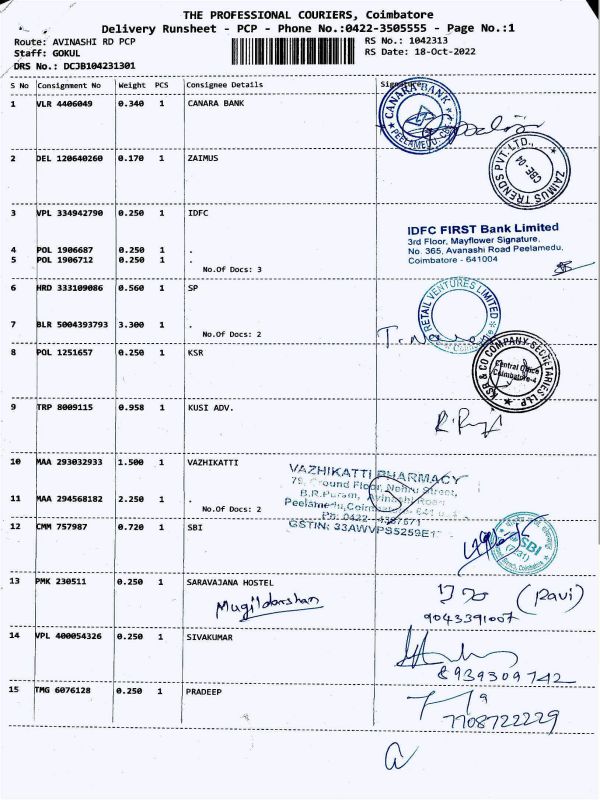 THE PROFESSIONAL COURIERS, Coimbatore
Delivery Runsheet - PCP - Phone No.:0422-3505555 - Page No.:1
Route: AVINASHI RD PCP RS No.: 1042313
Staff: GOKUL RS Date: 18-Oct-2022
DRS No.: DCJB104231301
S No Consignment No Weight PCS Consignee Details Signature
1 VLR 4406049 0.340 1 CANARA BANK
CANARA BANK
PEELAMEDU-CBE
2 DEL 120640260 0.170 1 ZAIMUS
ZAIMUS TRENDS PVT. LTD.,
CBE-04
3 VPL 334942790 0.250 1 IDFC
IDFC FIRST Bank Limited
3rd Floor, Mayflower Signature,
No. 365, Avanashi Road Peelamedu,
Coimbatore - 641004
4 POL 1906687 0.250 1 .
5 POL 1906712 0.250 1 .
No.Of Docs: 3
6 HRD 333109086 0.560 1 SP
RETAIL VENTURES LIMITED
7 BLR 5004393793 3.300 1 .
No.Of Docs: 2
8 POL 1251657 0.250 1 KSR
KSR & CO COMPANY SECRETARIES LLP
Central Office
Coimbatore-4
9 TRP 8009115 0.958 1 KUSI ADV.
10 MAA 293032933 1.500 1 VAZHIKATTI
VAZHIKATTI PHARMACY
79, Ground Floor, Nehru Street,
B.R.Puram, Avinashi Road
Peelamedu,Coimbatore- 641
Ph: 0422 - 4367671
GSTIN: 33AWVPS5259E1
11 MAA 294568182 2.250 1 .
No.Of Docs: 2
12 CMM 757987 0.720 1 SBI
SBI
13 PMK 230511 0.250 1 SARAVAJANA HOSTEL
Mugildarshan
(Ravi)
9043391007
14 VPL 400054326 0.250 1 SIVAKUMAR
8939309742
15 TMG 6076128 0.250 1 PRADEEP
7708722229